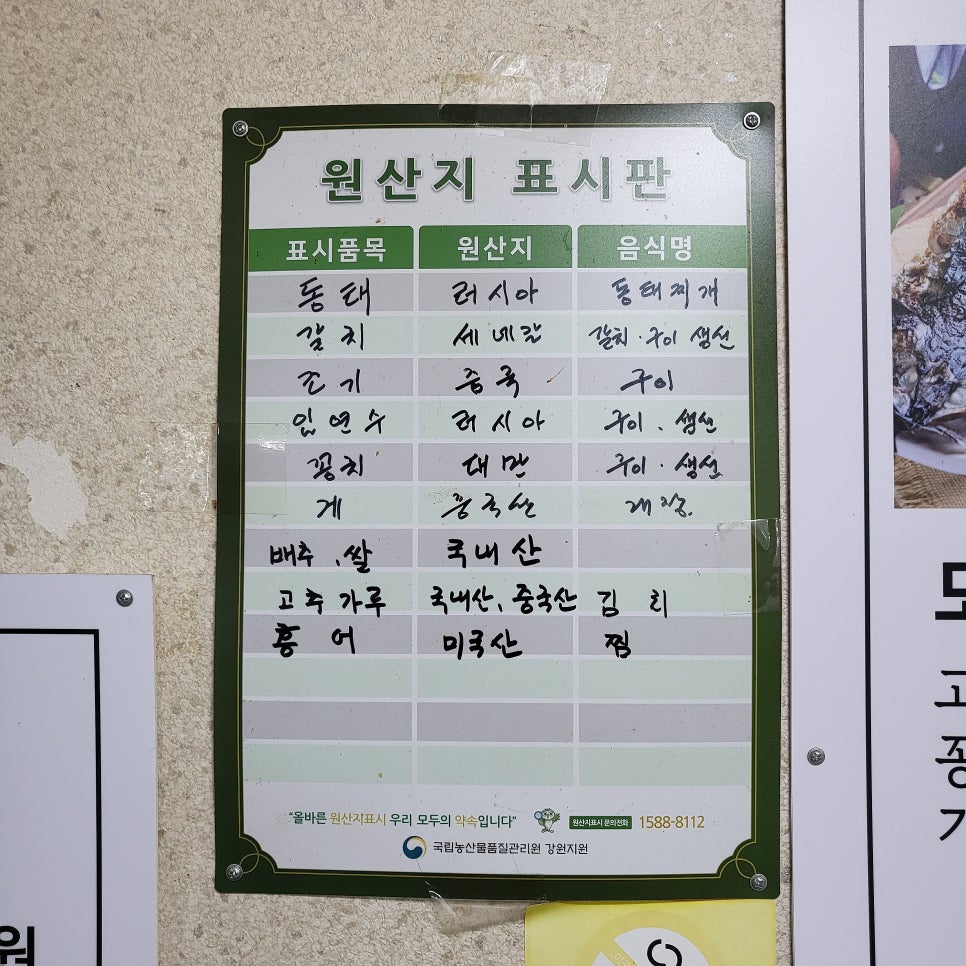 원산지 표시판
표시품목 원산지 음식명
동태 러시아 동태찌개
갈치 세네갈 갈치·구이 생선
조기 중국 구이
임연수 러시아 구이·생선
꽁치 대만 구이·생선
게 중국산 게장
배추, 쌀 국내산
고추가루 국내산, 중국산 김치
홍어 미국산 찜
"올바른 원산지표시 우리 모두의 약속입니다" 원산지표시 문의전화 1588-8112
국립농산물품질관리원 강원지원
원
모
고
종